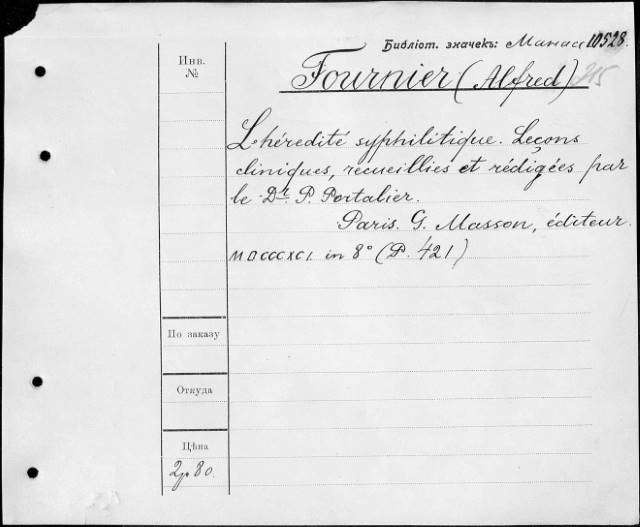 Библіот. значекъ: Манасс 10528.
Инв.
№
Fournier (Alfred) 215
L'hérédité syphilitique. Leçons
cliniques, recueillies et rédigées par
le Dr. P. Portalier.
Paris. G. Masson, éditeur.
MDCCCXCI. in 8° (P. 421)
По заказу
Откуда
Цѣна
2р 80.